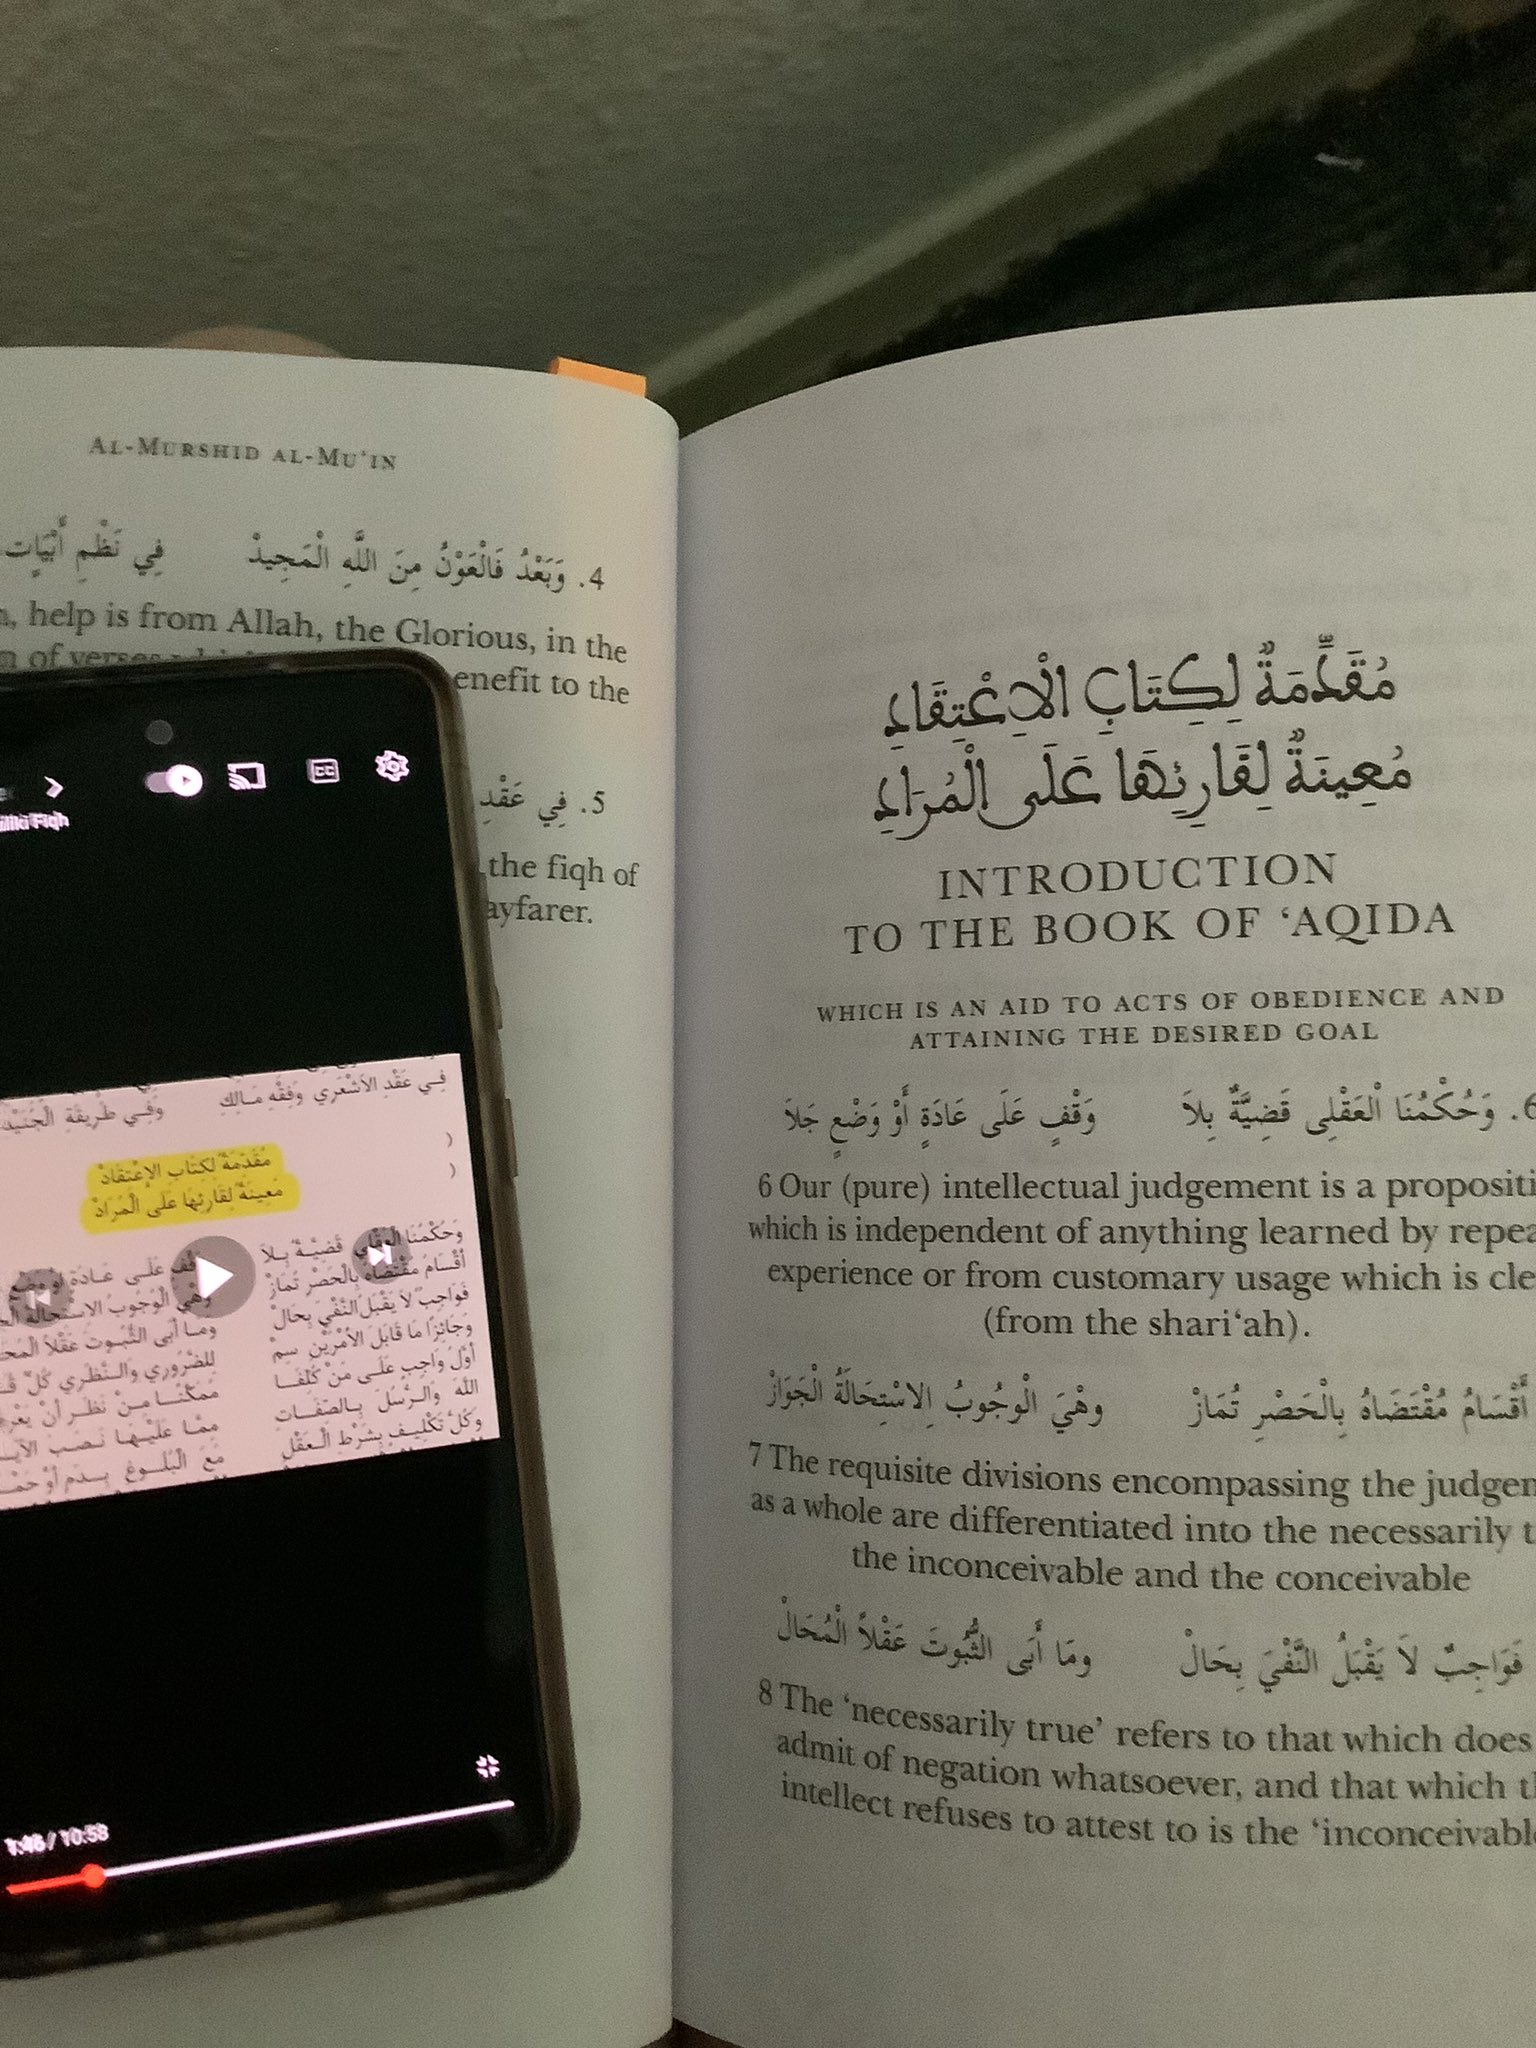 AL-MURSHID AL-MU'IN
4. وَبَعْدُ فَالْعَوْنُ مِنَ اللَّهِ الْمَجِيدْ فِي نَظْمِ أَبْيَاتٍ
help is from Allah, the Glorious, in the
of verses
benefit to the
5. فِي عَقْدِ
the fiqh of
wayfarer.
CC
Fiqh
فِي عَقْدِ الاَشْعَرِي وَفِقْهِ مَالِكِ وَفِي طَرِيقَةِ الْجُنَيْدِ
مُقَدِّمَةٌ لِكِتَابِ الاِعْتِقَادْ
مُعِينَةٌ لِقَارِئِهَا عَلَى الْمُرَادْ
وَحُكْمُنَا الْعَقْلِي قَضِيَّةٌ بِلاَ وَقْفٍ عَلَى عَادَةٍ أَوْ وَضْعٍ
أَقْسَامُ مُقْتَضَاهُ بِالْحَصْرِ تُمَازْ وَهْيَ الْوُجُوبُ الاِسْتِحَالَةُ
فَوَاجِبٌ لاَ يَقْبَلُ النَّفْيَ بِحَالْ وَمَا أَبَى الثُّبُوتَ عَقْلاً
وَجَائِزًا مَا قَابَلَ الأَمْرَيْنِ سِمْ لِلضَّرُورِي وَالنَّظَرِي كُلٌّ
أَوَّلُ وَاجِبٍ عَلَى مَنْ كُلِّفَا مُمَكَّنًا مِنْ نَظَرٍ أَنْ
اللَّهَ وَالرُّسُلَ بِالصِّفَاتِ مِمَّا عَلَيْهَا نَصَبَ
وَكُلُّ تَكْلِيفٍ بِشَرْطِ الْعَقْلِ مَعَ الْبُلُوغِ بِدَمٍ أَوْ
1:46 / 10:58
مُقَدِّمَةٌ لِكِتَابِ الْاِعْتِقَادِ
مُعِينَةٌ لِقَارِئِهَا عَلَى الْمُرَادِ
INTRODUCTION
TO THE BOOK OF ‘AQIDA
WHICH IS AN AID TO ACTS OF OBEDIENCE AND
ATTAINING THE DESIRED GOAL
6. وَحُكْمُنَا الْعَقْلِى قَضِيَّةٌ بِلاَ وَقْفٍ عَلَى عَادَةٍ أَوْ وَضْعٍ جَلاَ
6 Our (pure) intellectual judgement is a propositi
which is independent of anything learned by repea
experience or from customary usage which is cle
(from the shari‘ah).
أَقْسَامُ مُقْتَضَاهُ بِالْحَصْرِ تُمَازْ وهْيَ الْوُجُوبُ اِلاسْتِحَالَةُ الْجَوَازْ
7 The requisite divisions encompassing the judgem
as a whole are differentiated into the necessarily t
the inconceivable and the conceivable
فَوَاجِبٌ لاَ يَقْبَلُ النَّفْيَ بِحَالْ ومَا أَبَى الثُّبُوتَ عَقْلاً الْمُحَالْ
8 The ‘necessarily true’ refers to that which does
admit of negation whatsoever, and that which th
intellect refuses to attest to is the ‘inconceivable